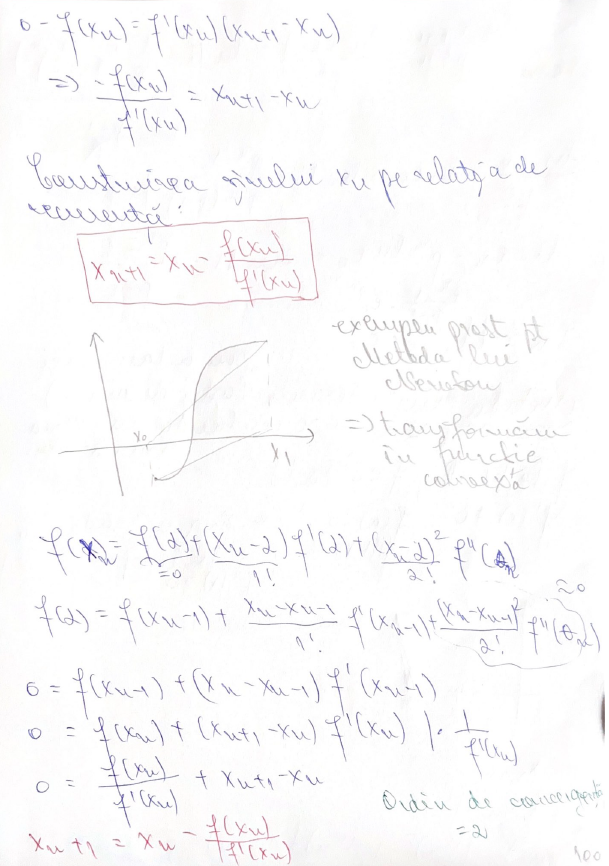 0 - f(xn) = f'(xn) (xn+1 - xn)
=> -f(xn) / f'(xn) = xn+1 - xn
Construirea șirului xn pe relația de
recurență:
xn+1 = xn - f(xn) / f'(xn)
exemplu prost pt
Metoda lui
Newton
=> transformăm
în funcție
convexă
x0
x1
f(xn) = f(2) + (xn-2)/1! f'(2) + (xn-2)²/2! f''(θn)
=0
≈0
f(2) = f(xn-1) + xn-xn-1/1! f'(xn-1) + (xn-xn-1)²/2! f''(θn)
0 = f(xn-1) + (xn - xn-1) f'(xn-1)
0 = f(xn) + (xn+1 - xn) f'(xn) | · 1/f'(xn)
0 = f(xn) / f'(xn) + xn+1 - xn
Ordin de convergență
= 2
xn+1 = xn - f(xn) / f'(xn)
100